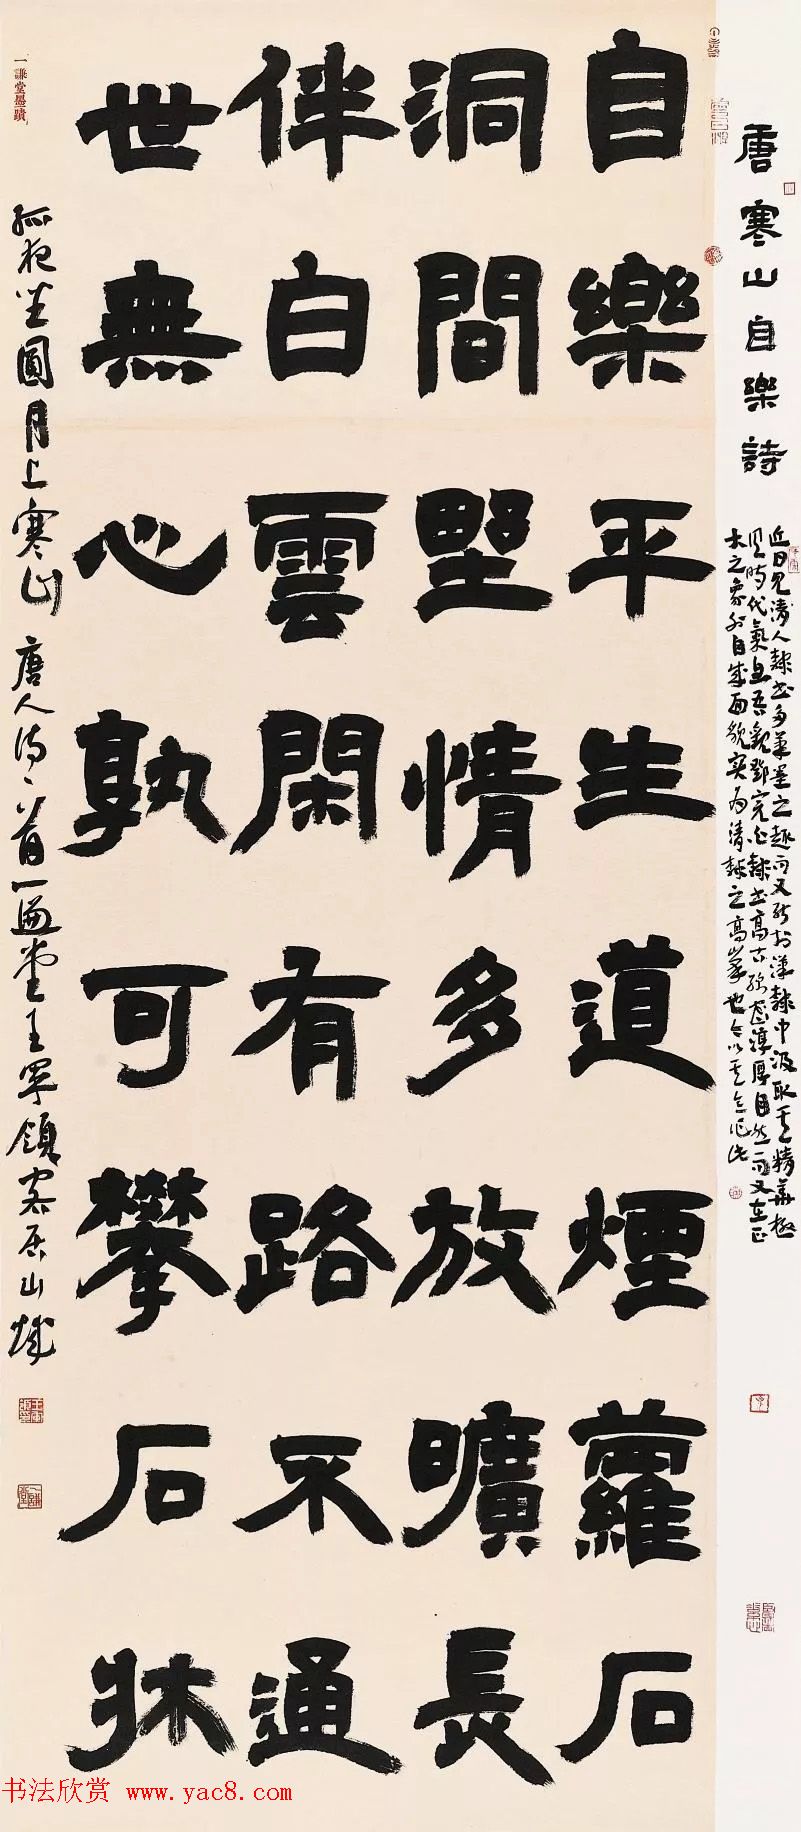 唐寒山自樂詩
近日見清人隸書多筆墨之趣而又能於漢隸中汲取其精華極
見時代氣息吾觀鄧完白隸書高古淳厚自然而又在正
大之象外自成面貌實為清隸之高峯也今以其意作此
自樂平生道煙蘿石
洞間野情多放曠長
伴白雲閑有路不通
世無心孰可攀石牀
孤夜坐圓月上寒山 唐人詩一首一謙堂王軍領客居山城
一謙堂墨蹟
书法欣赏 www.yac8.com